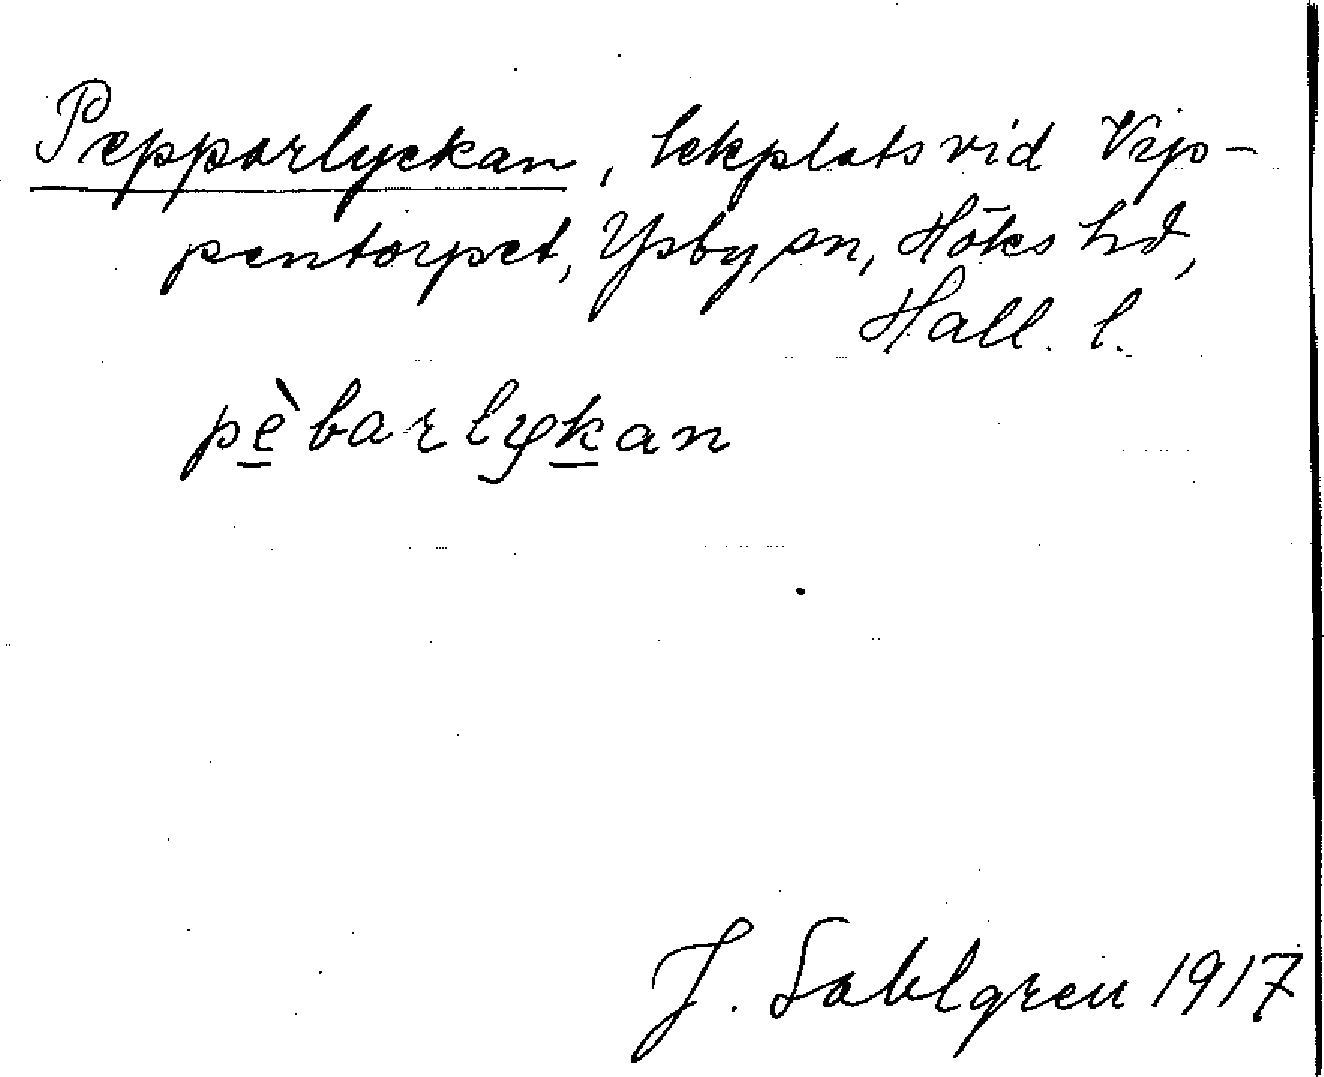 Pepparlyckan, lekplats vid Vip-
pentorpet, Ysby sn, Höks hd,
Hall. l.
pèbarlykan
J. Sahlgren 1917